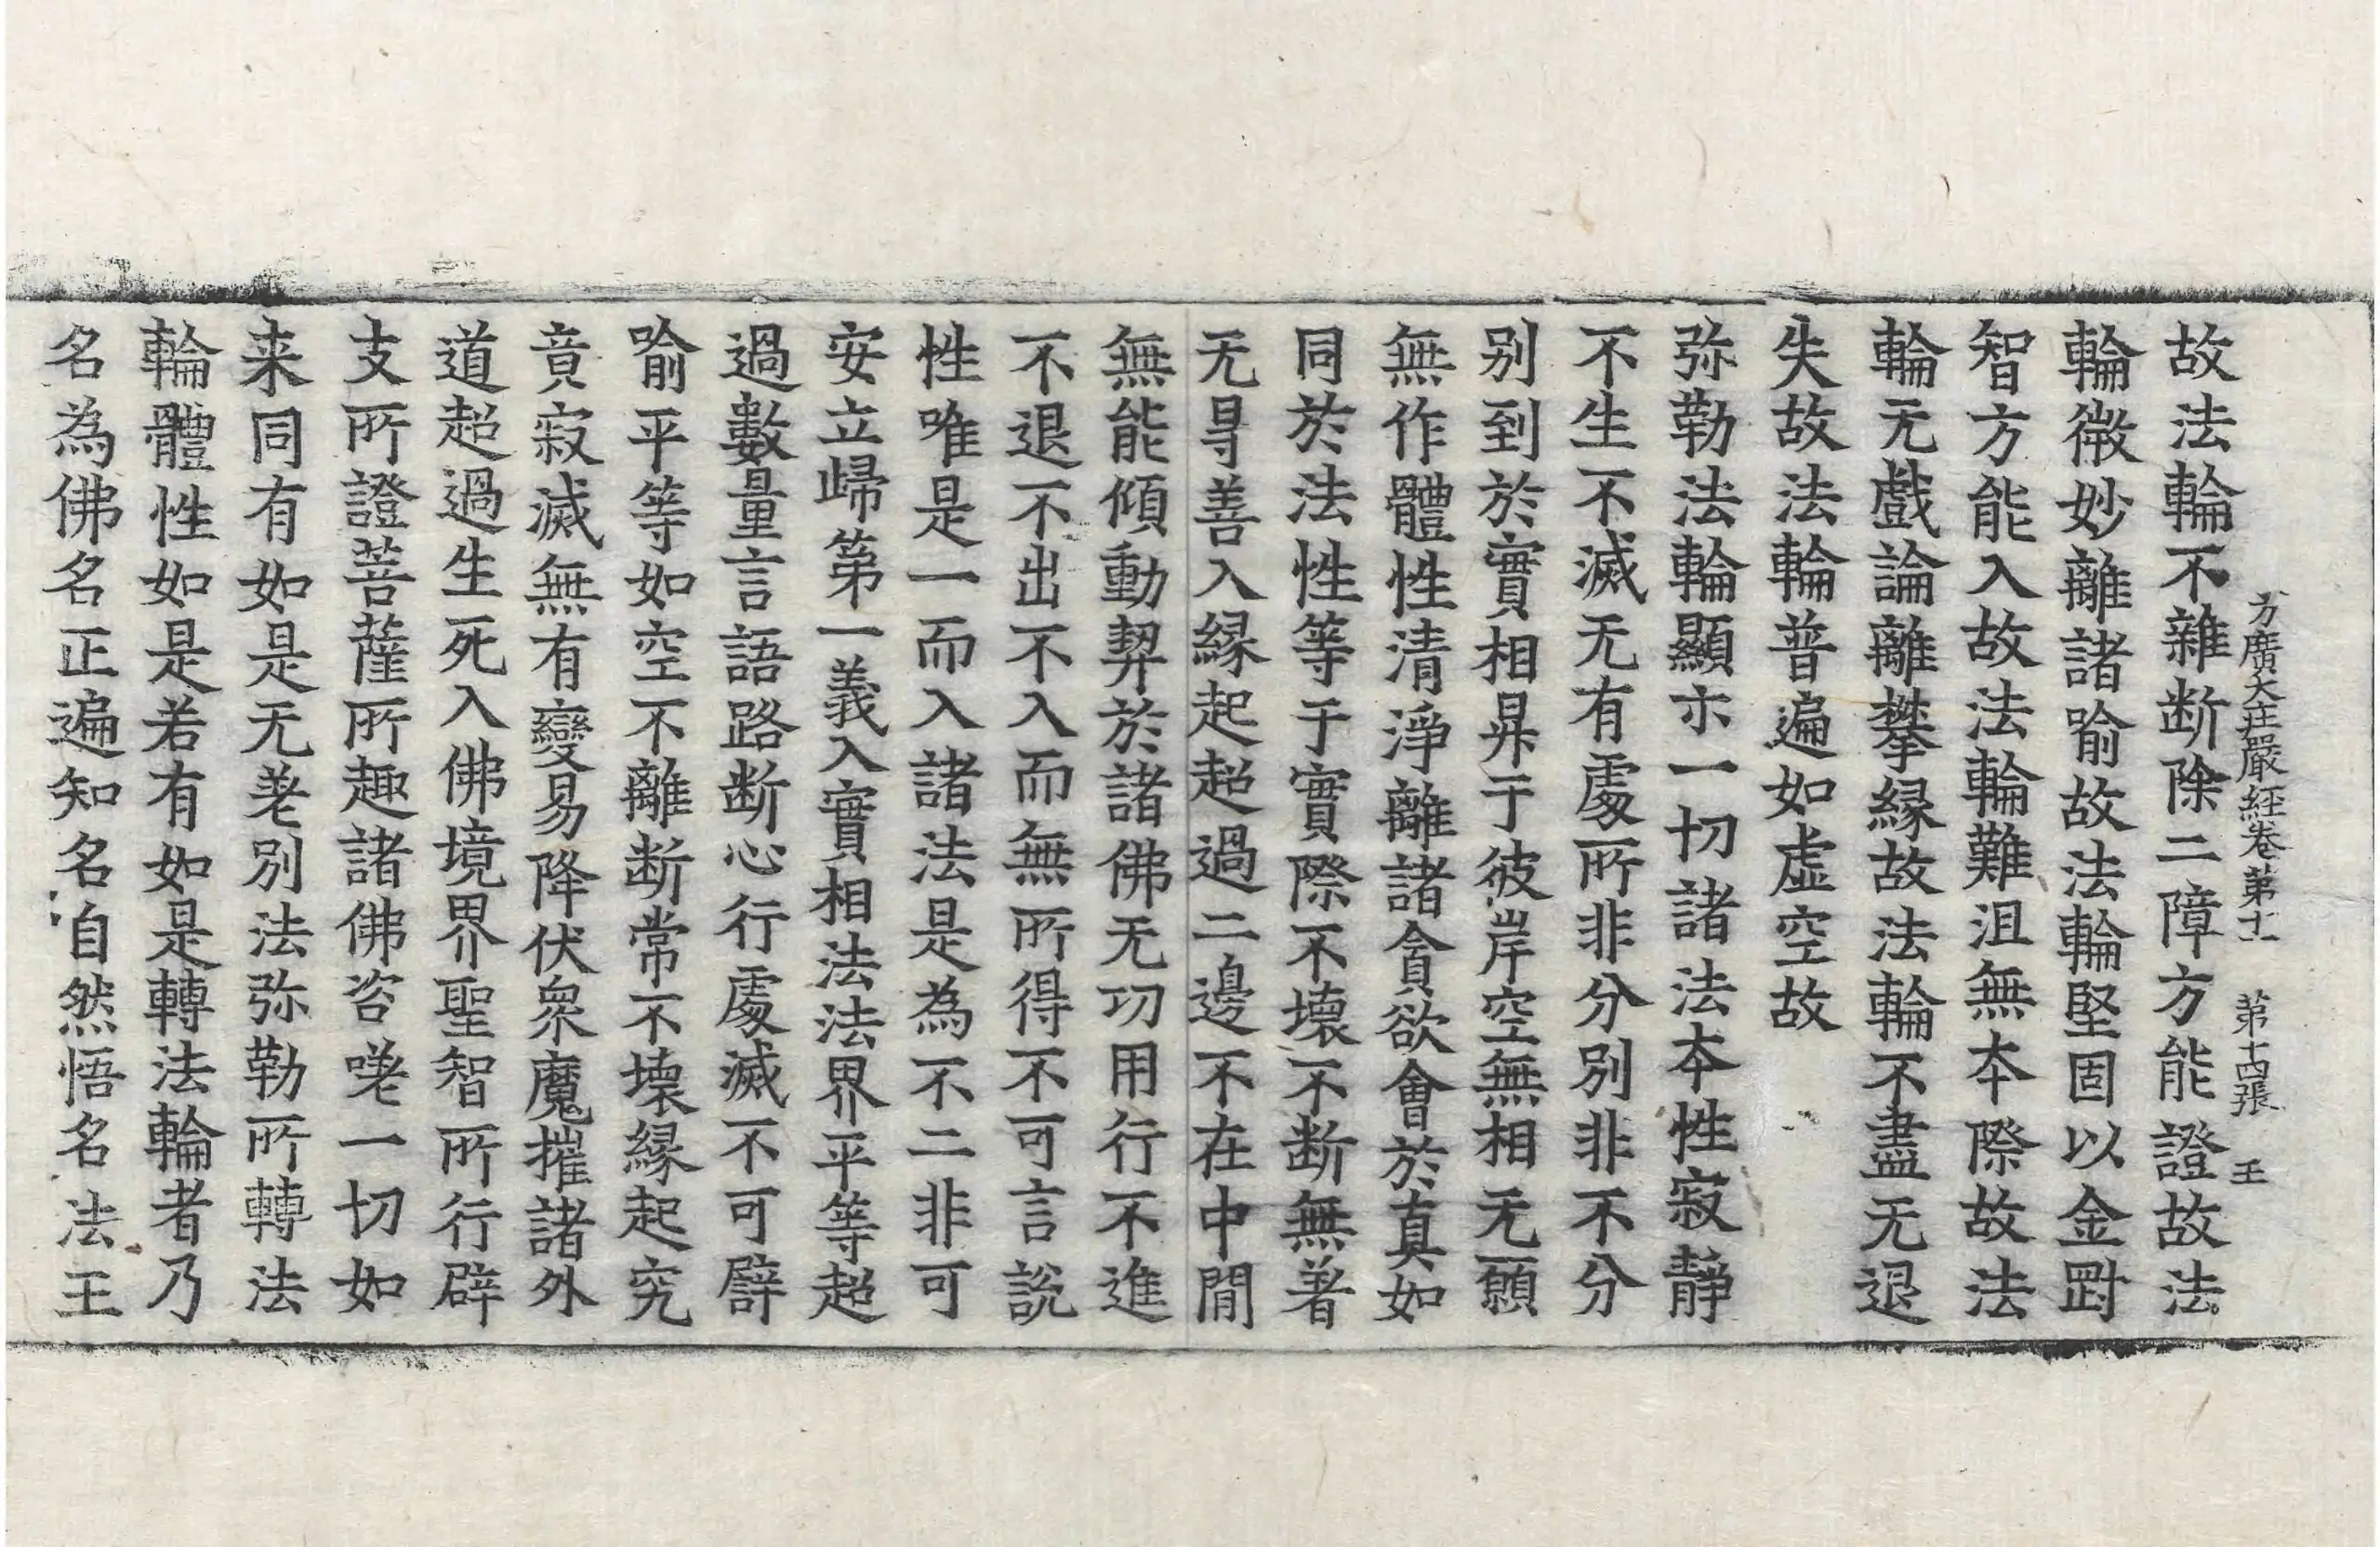 方廣大莊嚴經卷第十一 第十四張 王
故法輪不雜断除二障方能證故法
輪微妙離諸喻故法輪堅固以金剛
智方能入故法輪難沮無本際故法
輪无戲論離攀縁故法輪不盡无退
失故法輪普遍如虛空故
弥勒法輪顯示一切諸法本性寂靜
不生不滅无有處所非分別非不分
別到於實相昇于彼岸空無相无願
無作體性清淨離諸貪欲會於真如
同於法性等于實際不壞不断無著
无㝵善入縁起超過二邊不在中間
無能傾動契於諸佛无功用行不進
不退不出不入而無所得不可言說
性唯是一而入諸法是為不二非可
安立歸第一義入實相法法界平等超
過數量言語路断心行處滅不可譬
喻平等如空不離断常不壞縁起究
竟寂滅無有變易降伏衆魔摧諸外
道超過生死入佛境界聖智所行辟
支所證菩薩所趣諸佛咨嗟一切如
来同有如是无差別法弥勒所轉法
輪體性如是若有如是轉法輪者乃
名為佛名正遍知名自然悟名法王